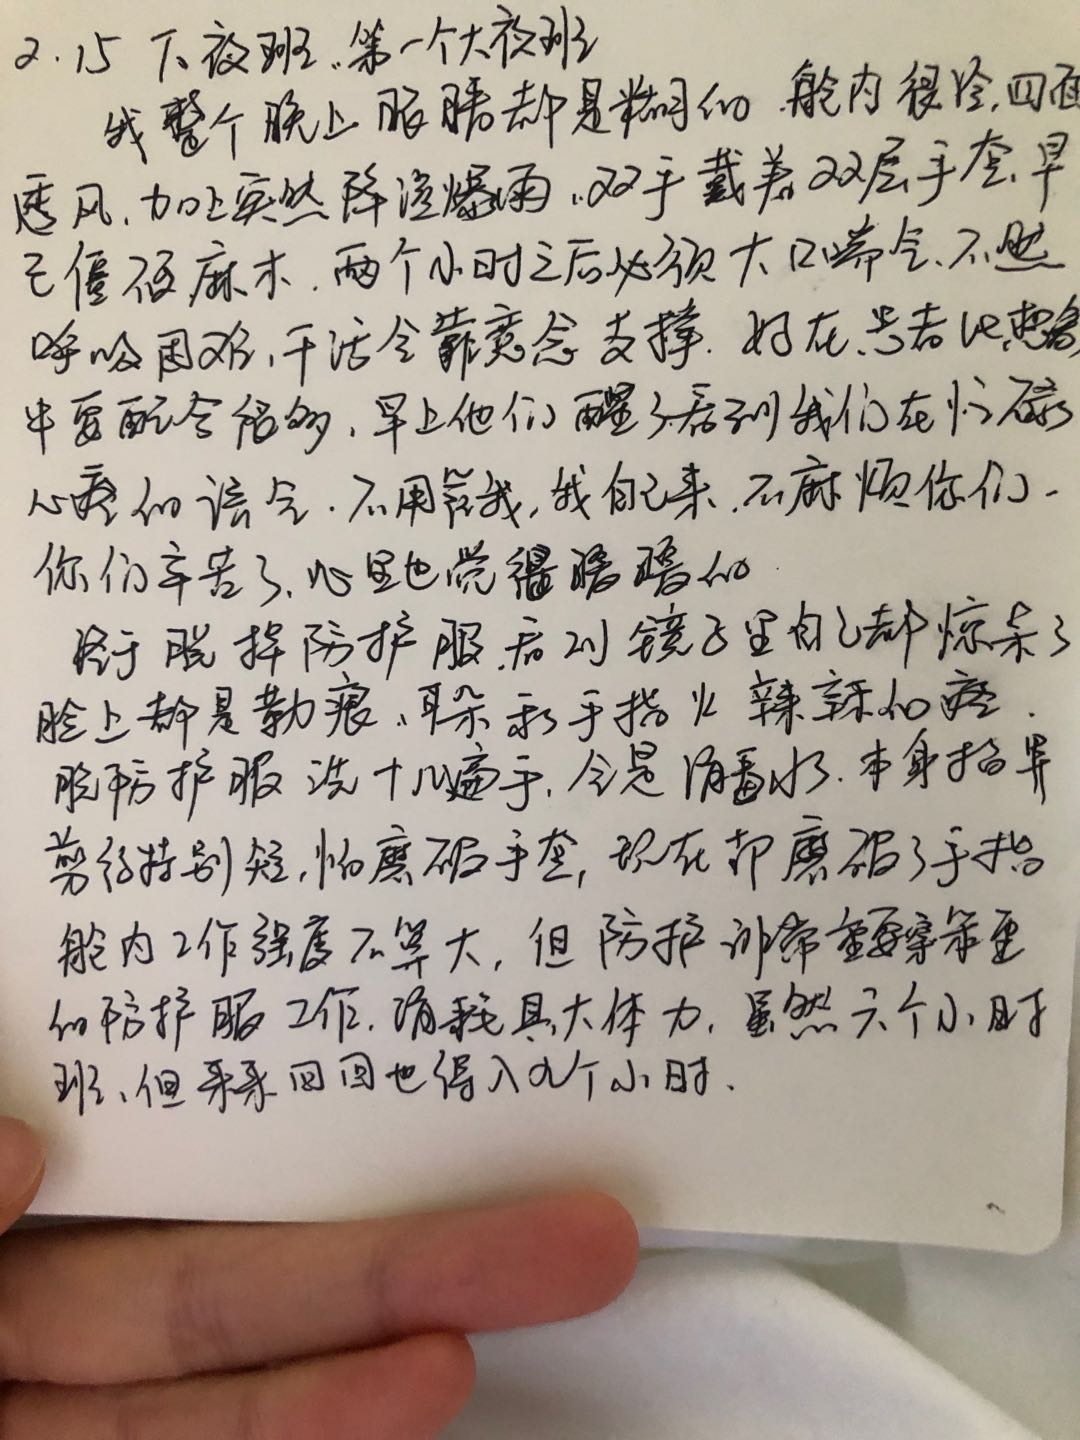 2.15 下夜班、第一个大夜班
我整个晚上眼睛都是糊的.舱内很冷,四面
透风、加上突然降温爆雨、双手戴着双层手套、早
已僵硬麻木.两个小时之后必须大口喘气、不然
呼吸困难,干活全靠意念支撑.好在、患者比想象
中要配合很多,早上他们醒了看到我们在忙碌
心疼的语气.不用管我,我自己来.不麻烦你们-
你们辛苦了、心里也觉得暖暖的.
终于脱掉防护服、看到镜子里自己都惊呆了
脸上都是勒痕、耳朵和手指火辣辣的疼.
脱防护服洗十几遍手,全是消毒水.本身指甲
剪得特别短,怕磨破手套,现在却磨破了手指
舱内工作强度不算大,但防护非常重要穿笨重
的防护服工作.消耗巨大体力,虽然六个小时
班、但来来回回也得八九个小时.